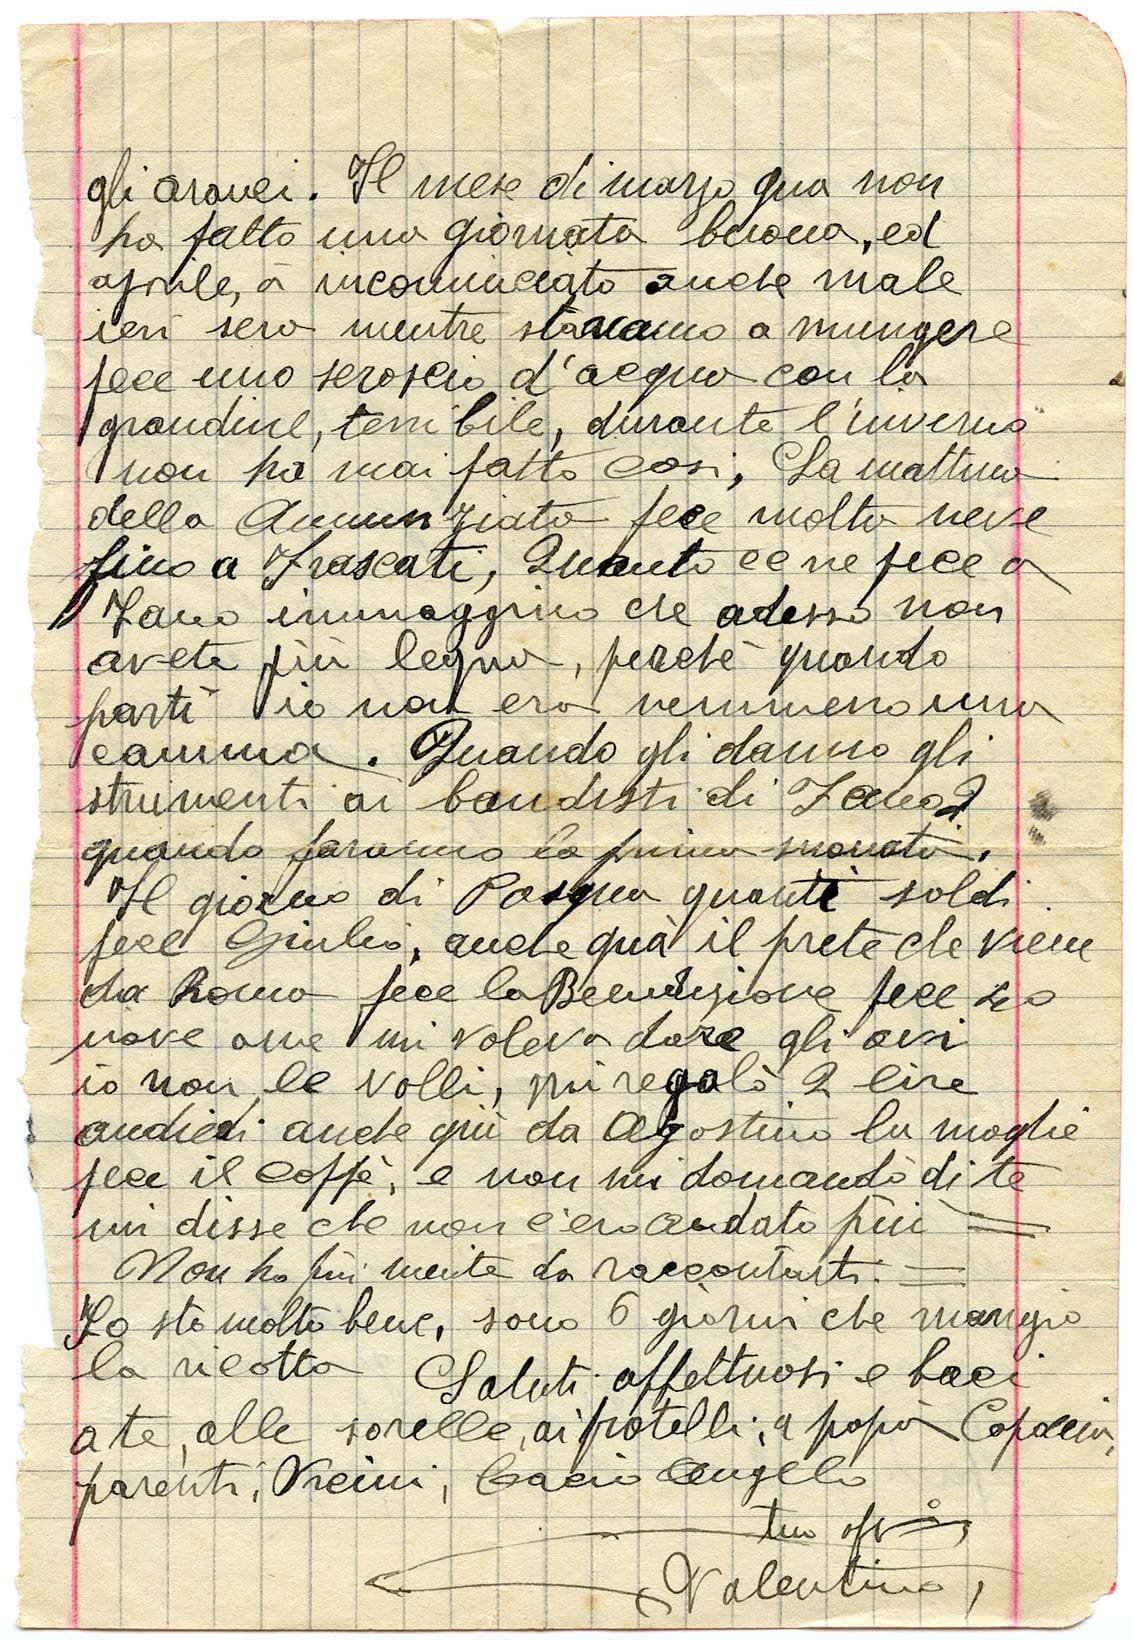 gli aranci. Il mese di marzo qua non
ha fatto una giornata buona, ed
aprile, à incominciato anche male
ieri sera mentre stavamo a mungere
fece uno scroscio d'acqua con la
grandine, terribile, durante l'inverno
non ha mai fatto cosi, La mattina
della Annunziata fece molta neve
fino a Frascati, Quanta ce ne fece a
Fano immaggino che adesso non
avete più legna, perchè quando
parti io non era nemmeno una
canna. Quando gli danno gli
strumenti ai bandisti di Fano?
quando faranno la prima suonata.
Il giorno di Pasqua quanti soldi
fece Giulio, anche quà il prete che viene
da Roma fece la Benedizione fece
nove ame mi voleva dare gli ovi
io non le volli, mi regalò 2 lire
andiedi anche qui da Agostino la moglie
fece il caffè, e non mi domandò di te
mi disse che non c'ero andato più
Non ho più niente da raccontarti.
Io sto molto bene, sono 6 giorni che mangio
la ricotta Saluti affettuosi e baci
a te, alle sorelle, ai fratelli, a papà
parenti, Vicini, Bacio Angelo
tuo
Valentino